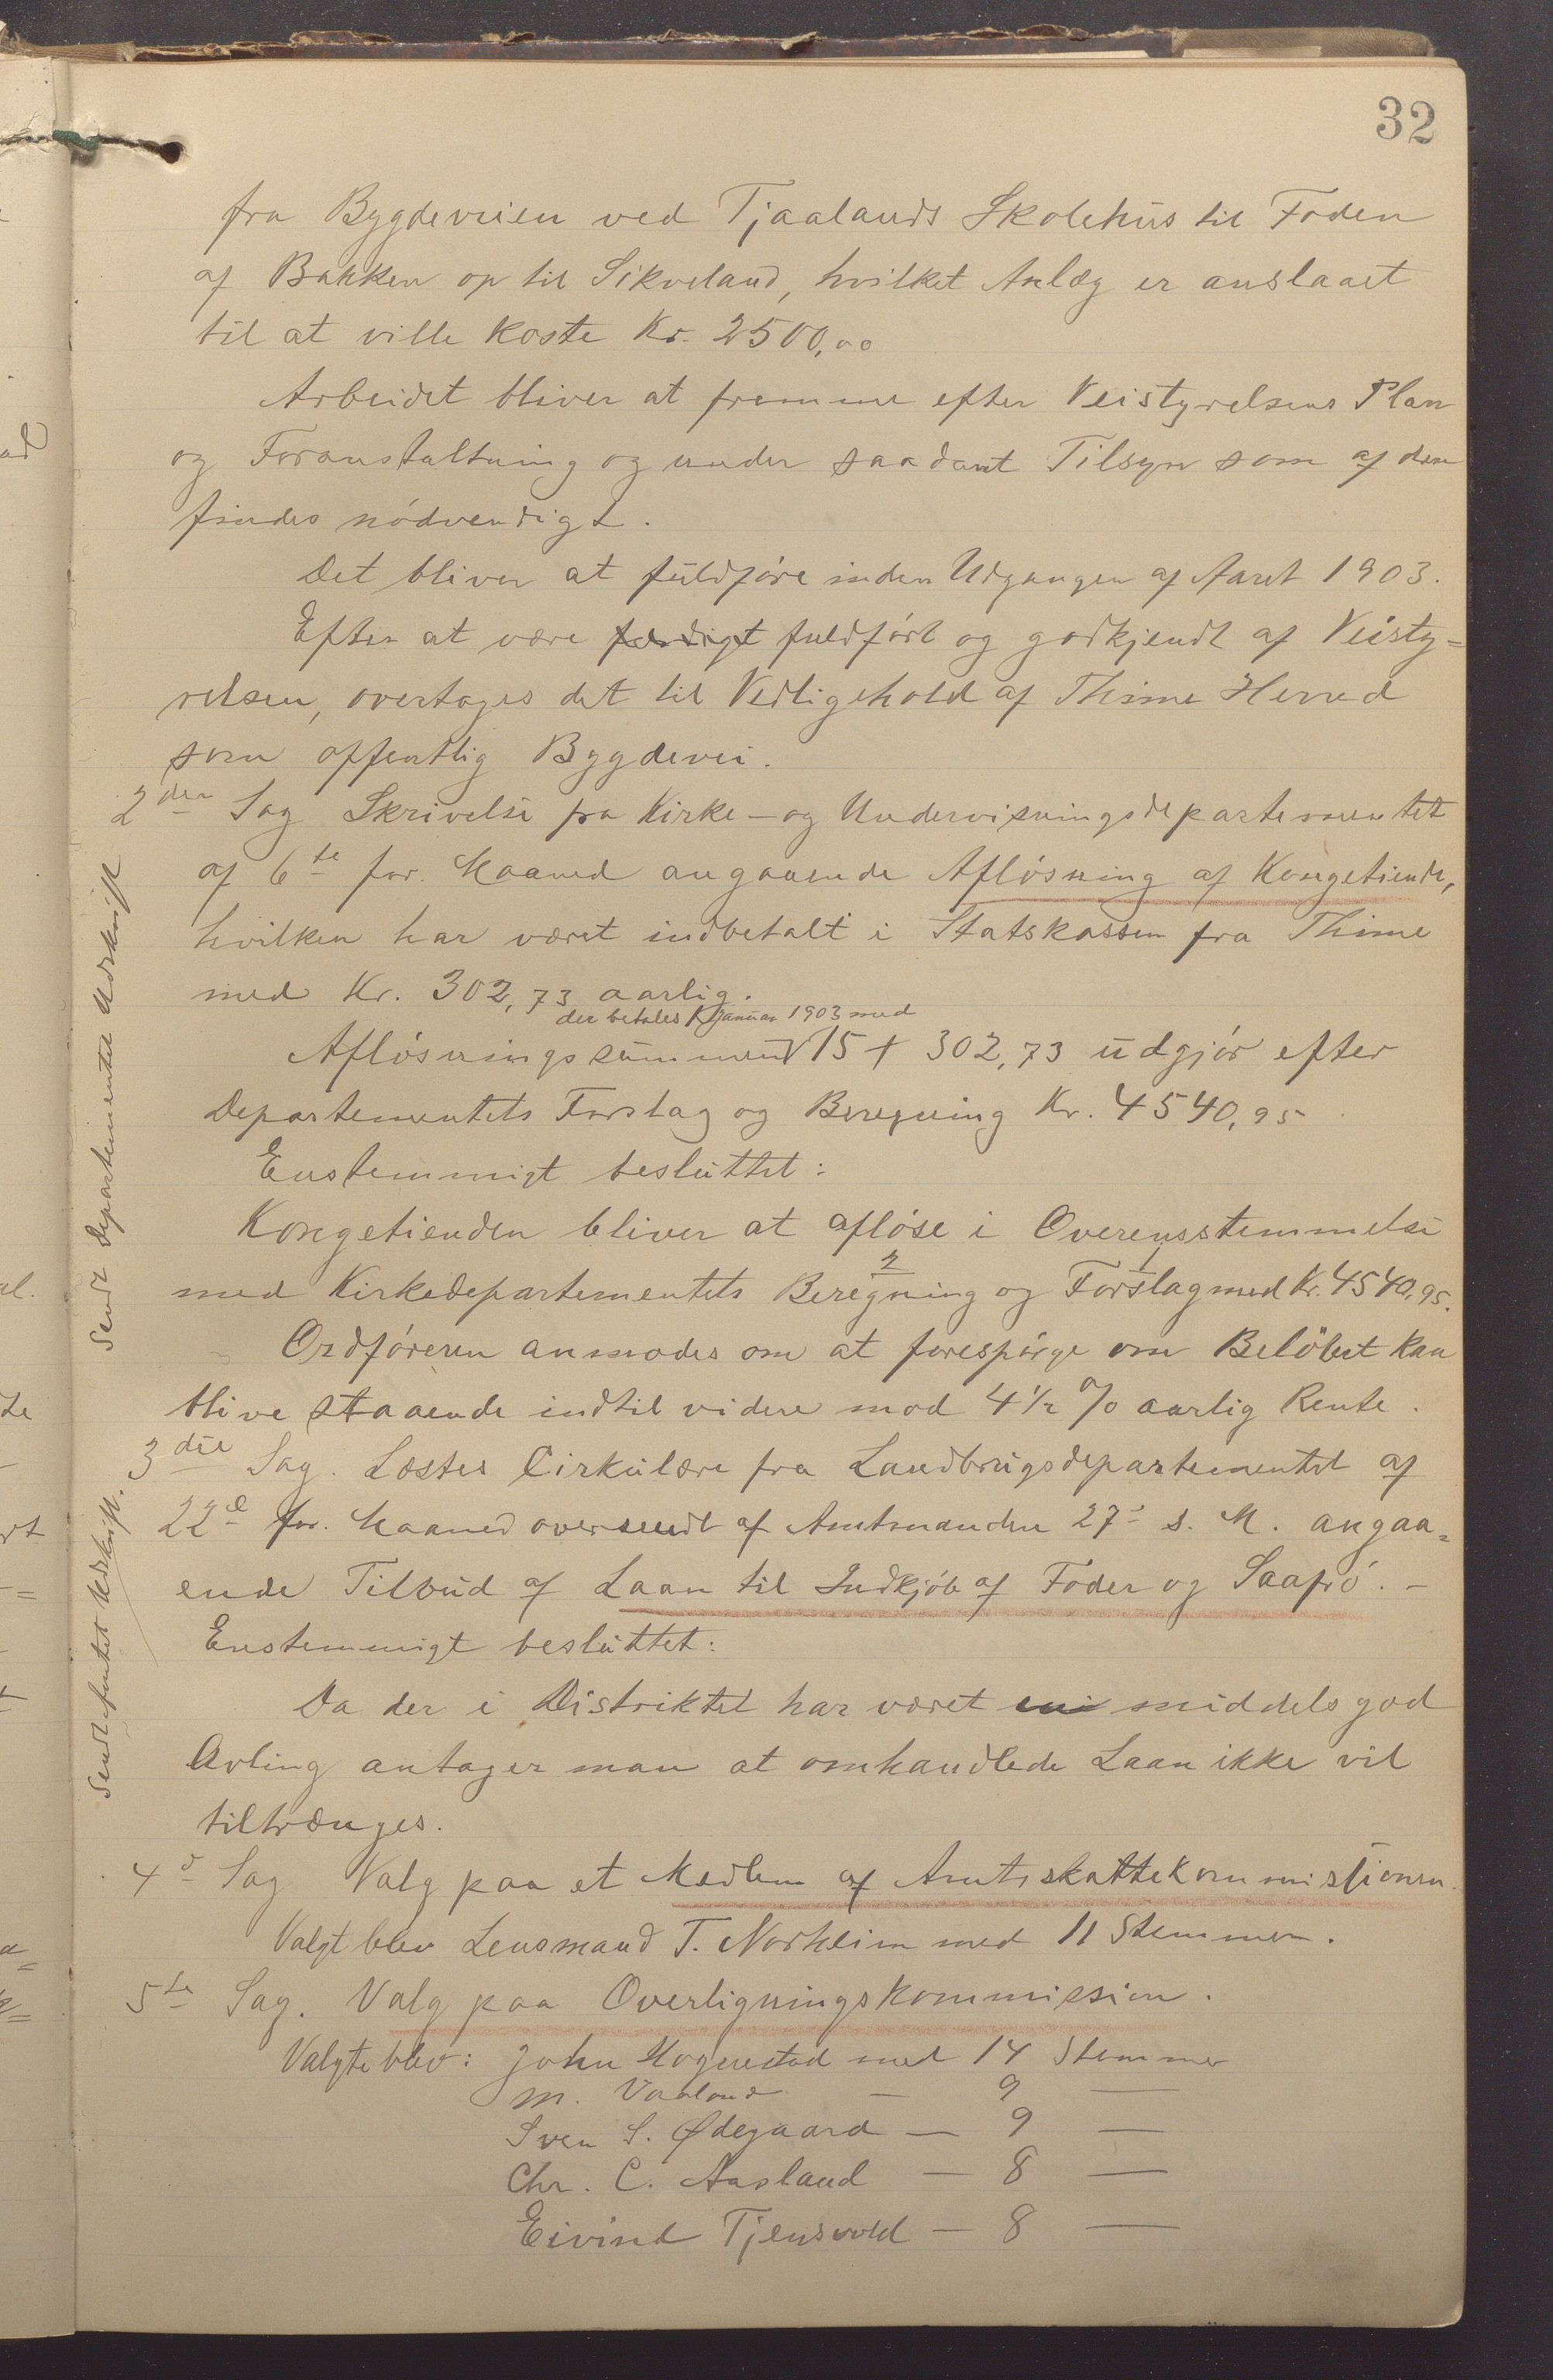 32
fra Bygdeveien ved Tjaalands Skolehus til Foden
af Bakken op til Sikveland, hvilket Anlæg er anslaaet
til at ville koste Kr. 2500,00
Arbeidet bliver at fremme efter Veistyrelsens Plan
og Foranstaltning og under saadant Tilsyn som af den
findes nødvendigt.
Det bliver at fuldføre inden Udgangen af Aaret 1903.
Efter at være færdigt fuldført og godkjendt af Veisty=
relsen, overtages det til Vedligehold af Thime Herred
som offentlig Bygdevei.
2den Sag Skrivelse fra Kirke- og Undervisningsdepartementet
af 6te for. Maaned angaaende Afløsning af Kongetiende,
hvilken har været indbetalt i Statskassen fra Thime
med Kr. 302,73 aarlig.
der betales 1 Januar 1903 med
Afløsningssummen 15 + 302,73 udgjør efter
Departementets Forslag og Beregning Kr. 4540,95
Enstemmigt besluttet:
Kongetienden bliver at afløse i Overensstemmelse
2 1
med Kirkedepartementets Beregning og Forslag med Kr. 4540,95.
Ordføreren anmodes om at forespørge om Beløbet kan
blive staaende indtil videre mod 4 1/2 % aarlig Rente.
3die Sag. Læstes Cirkulære fra Landbrugsdepartementet af
22d for. Maaned oversendt af Amtmanden 27 s. M. angaa=
ende Tilbud af Laan til Indkjøb af Foder og Saafrø. -
Enstemmigt besluttet:
Da der i Distriktet har været en middels god
Avling antager man at omhandlede Laan ikke vil
tiltrænges.
4d Sag Valg paa et Medlem af Amtsskattekommissionen.
Valgt blev Lensmand T. Norheim med 11 Stemmer.
5te Sag. Valg paa Overligningskommission.
Valgte blev: John Hognestad med 14 Stemmer
M. Vaaland - 9 -
Sven S. Ødegaard - 9 -
Chr. C. Aasland - 8 -
Eivind Tjensvold - 8 -
Sendt Departementet Udskrift
Sendt Amtet Udskrift.